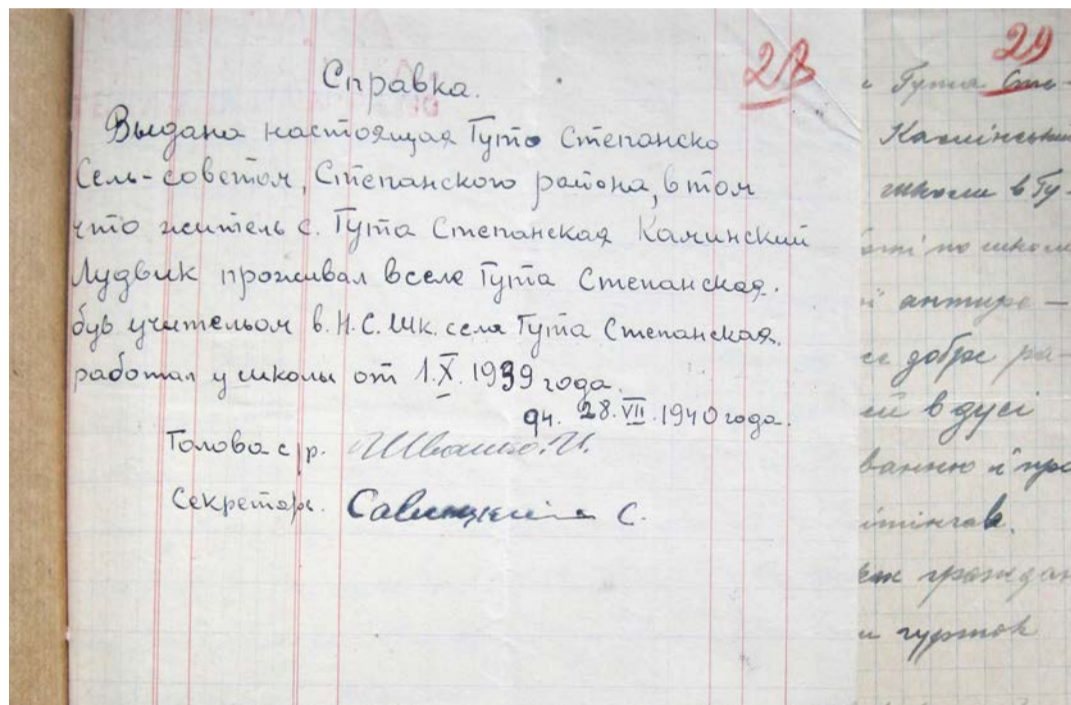 28
Справка.
Выдана настоящая Гуто Степанско
Сель-советом, Степанского района, в том
что житель с. Гута Степанская Каминский
Лудвик проживал в селе Гута Степанская.
був учительом в. Н.С. шк. села Гута Степанская.
работал у школы от 1.X.1939 года.
дн. 28.VII.1940 года.
Голова с/р. И.
Секретарь. Савицкий С.
29
Гута Сте-
Камінський
школи в Гу-
по школі
антире-
добре ра-
в дусі
ванню і про
мітінгав.
як граждан
гурток